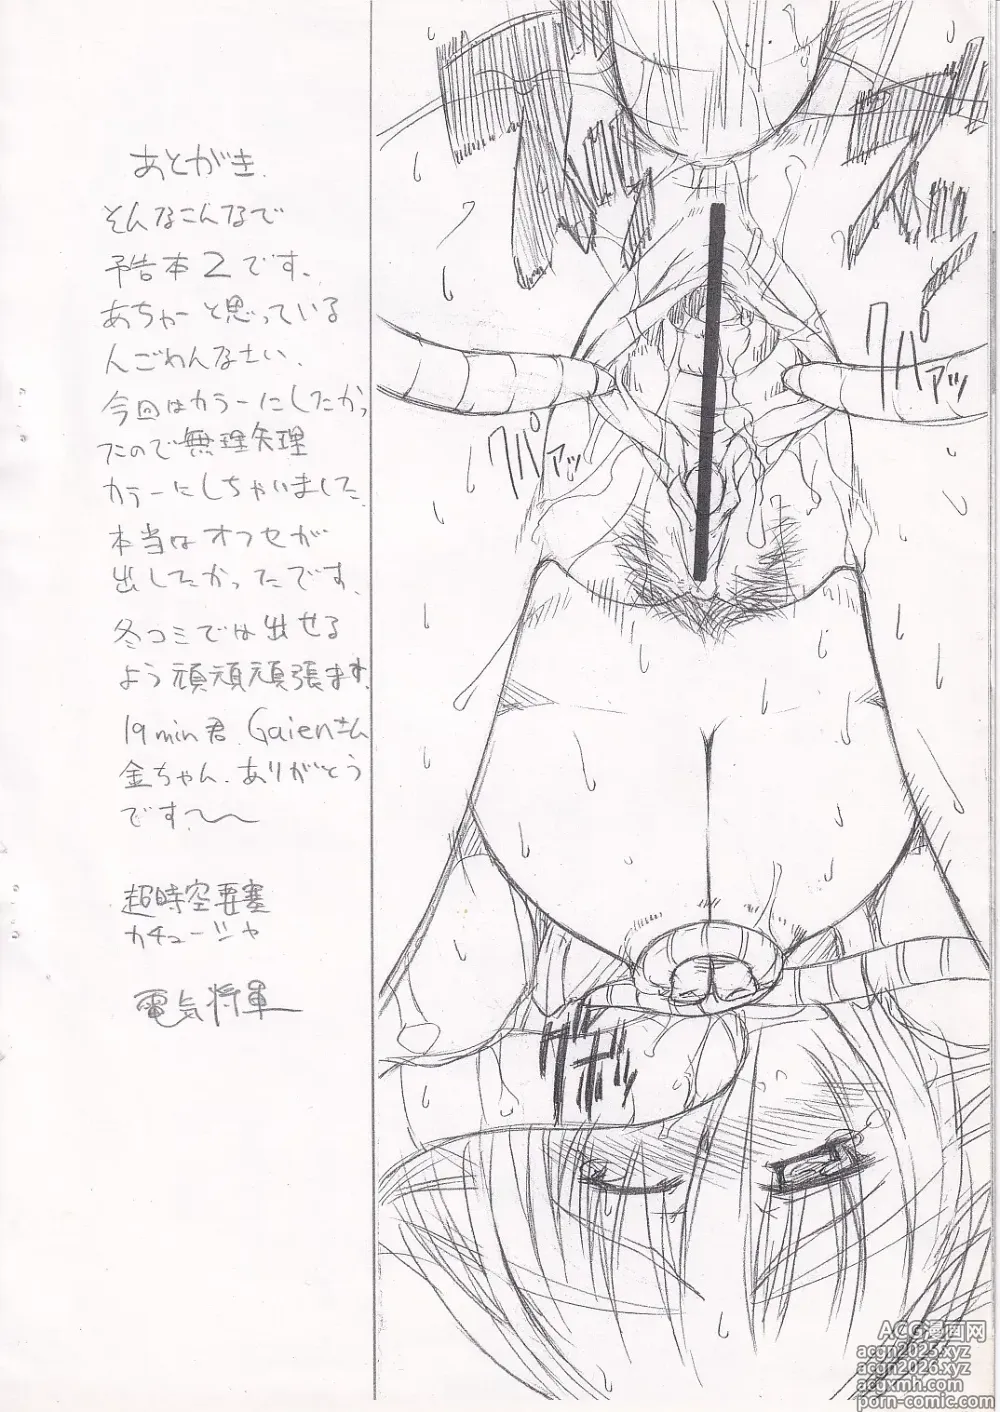 あとがき.
そんなこんなで
予告本2です.
あちゃーと思っている
人ごめんなさい.
今回はカラーにしたかっ
たので無理矢理
カラーにしちゃいました.
本当はオフセが
出したかったです.
冬コミでは出せる
よう頑頑頑張ます.
19min君. Gaienさん
金ちゃん. ありがとう
です.〜
超時空要塞
カチューシャ
電気将軍
クパァッ
クパァッ
ACG漫画网
acgn2025.xyz
acgn2026.xyz
acgxmh.com
porn-comic.com